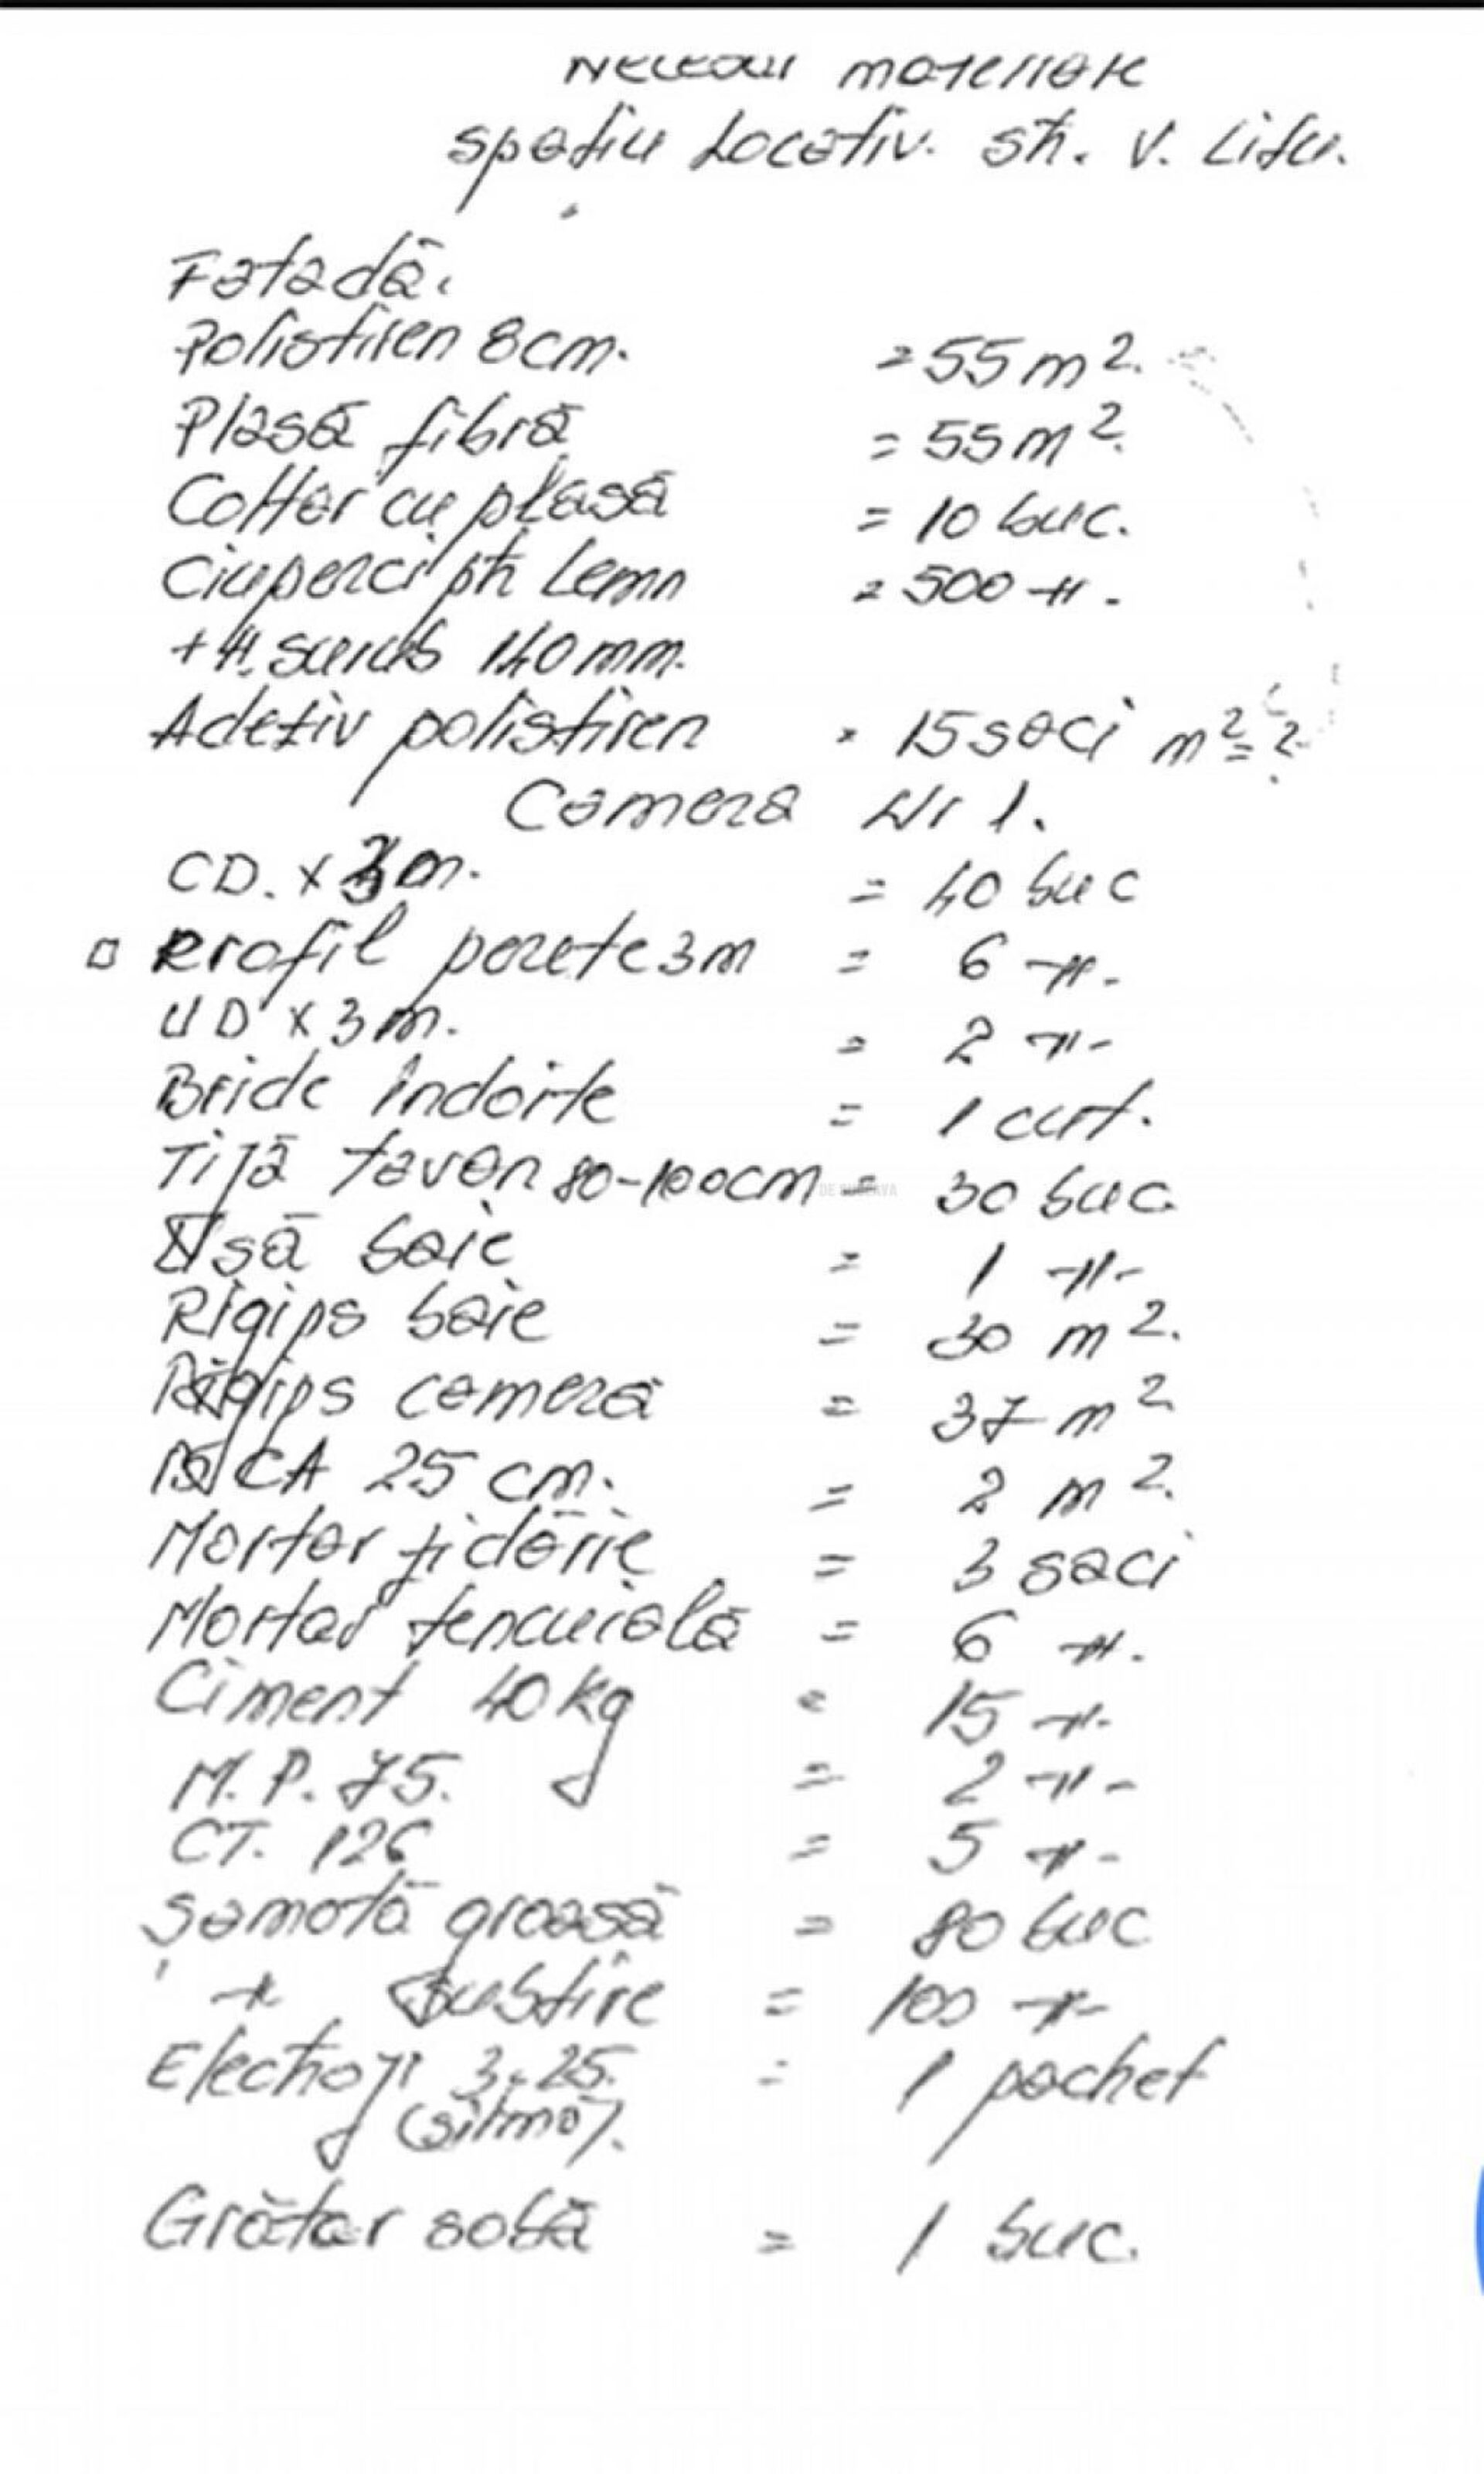 Necesar materiale
spațiu Locativ. str. V. Lifu.
Fatadă.
Polistiren 8cm. = 55 m2.
Plasă fibră = 55 m2.
Coltar cu plasă = 10 buc.
Ciuperci ptr Lemn = 500 -11-.
+ 11 surub 140 mm.
Adeziv polistiren = 15 saci m2 = ?
Camera Nr 1.
CD. x 3 m. = 40 buc
Profil perete 3 m = 6 -11-.
UD x 3 m. = 2 -11-
Bride îndoite = 1 cut.
Tijă tavan 80-100cm = 30 buc.
DE
Usă baie = 1 -11-
Rigips baie = 30 m2.
Rigips cameră = 37 m2
BCA 25 cm. = 2 m2.
Mortar zidărie = 3 saci
Mortar tencuială = 6 -11-.
Ciment 40 kg = 15 -11-
M.P. 75. = 2 -11-
CT. 126 = 5 -11-
Șamotă groasă = 80 buc
-11- subtire = 100 -11-
Electrozi 3,25. = 1 pachet
Grătar sobă = 1 buc.